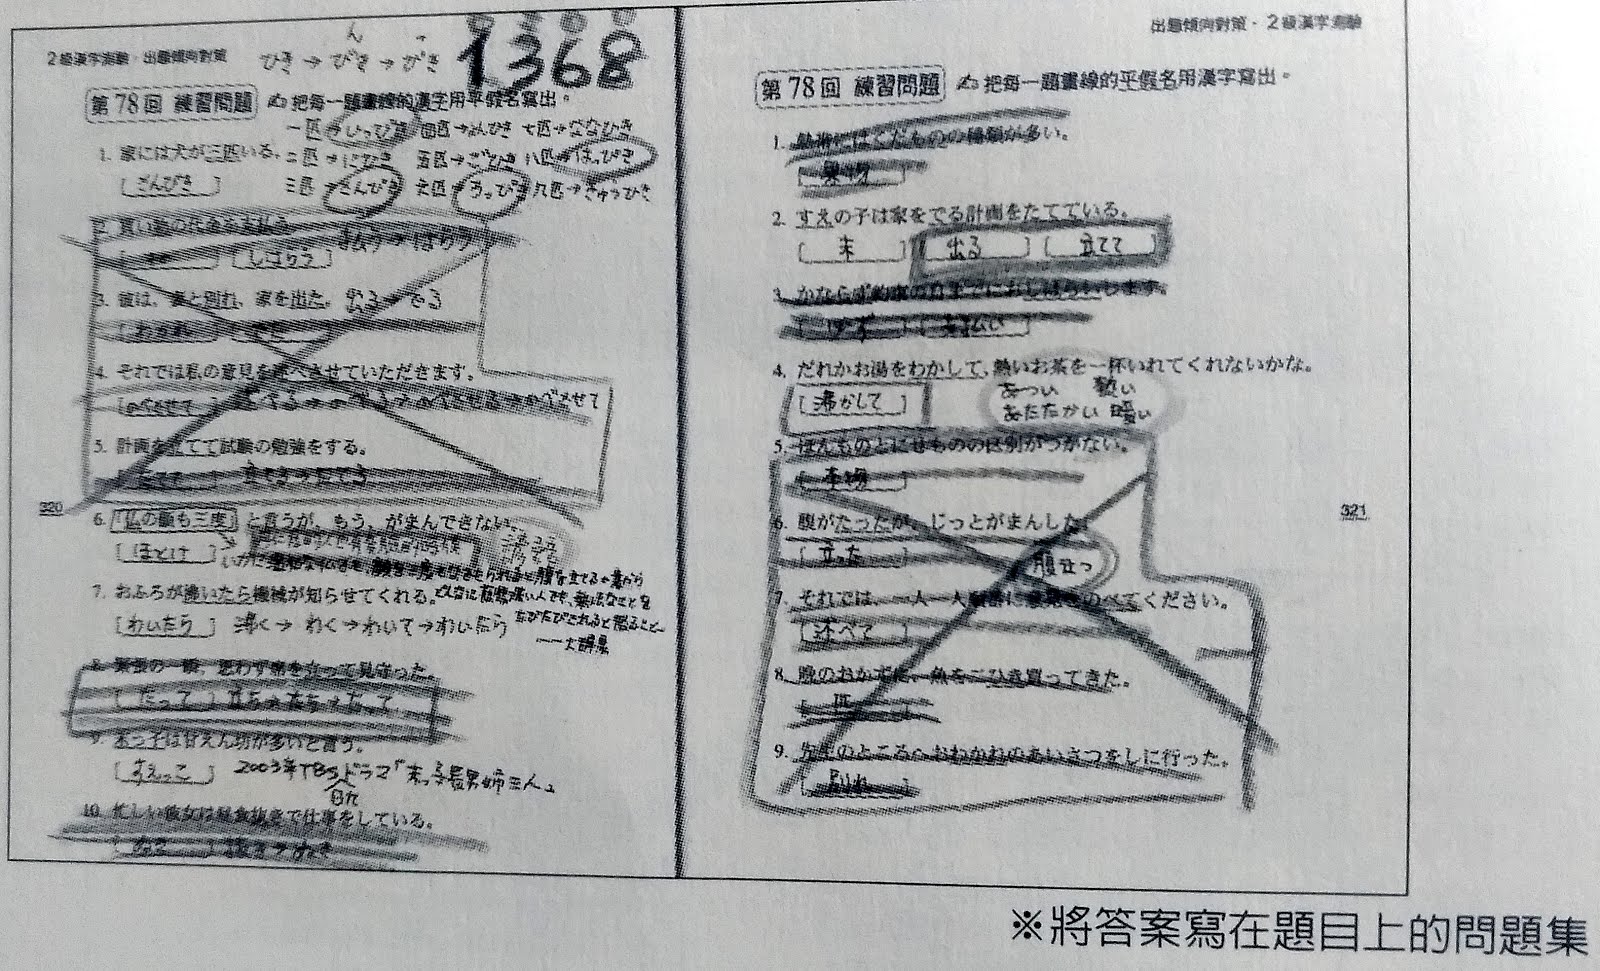 2級漢字測驗・出題傾向對策
ひき→びき→ぴき
1368
第78回 練習問題 把每一題畫線的漢字用平假名寫出。
一匹→いっぴき 四匹→よんひき 七匹→ななひき
1. 家には犬が三匹いる。二匹→にひき 五匹→ごひき 八匹→はっぴき
[さんびき] 三匹→さんびき 六匹→ろっぴき 九匹→きゅうひき
2. 買い物の代金を支払う。 払う→はらう
[しはらう]
3. 彼は、妻と別れ、家を出た。 出る→でる
[わかれ]
4. それでは私の意見を述べさせていただきます。
[のべさせて] のべさせて
5. 計画を立てて試験の勉強をする。
[たてて] 立てる→たてる
320
6. 「仏の顔も三度」と言うが、もう、がまんできない。
[ほとけ] 諺語
7. おふろが沸いたら機械が知らせてくれる。
[わいたら] 沸く→わく→わいて→わいたら
——大辞泉
8. 緊張の一瞬、思わず席を立って見守った。
[たって] 立ち→たち→たって
9. 末っ子は甘えん坊が多いと言う。
[すえっこ] 2003年TBSドラマ「末っ子長男姉三人」
10. 忙しい彼女は昼食抜きで仕事をしている。
出題傾向對策・2級漢字測驗
第78回 練習問題 把每一題畫線的平假名用漢字寫出。
1. 熱帯にはくだものの種類が多い。
[果物]
2. すえの子は家をでる計画をたてている。
[末] [出る] [立てて]
3. かならず約束の日までにおしはらいします。
[必ず] [支払い]
4. だれかお湯をわかして、熱いお茶を一杯いれてくれないかな。
[沸かして] あつい 熱い
あたたかい 暖い
5. ほんものとにせものの区別がつかない。
[本物]
6. 腹がたったが、じっとがまんした。
[立った] 腹立つ
321
7. それでは、一人一人順番に意見をのべてください。
[述べて]
8. 晩のおかずに、魚をにひき買ってきた。
[匹]
9. 先生のところへおわかれのあいさつをしに行った。
[別れ]
※將答案寫在題目上的問題集